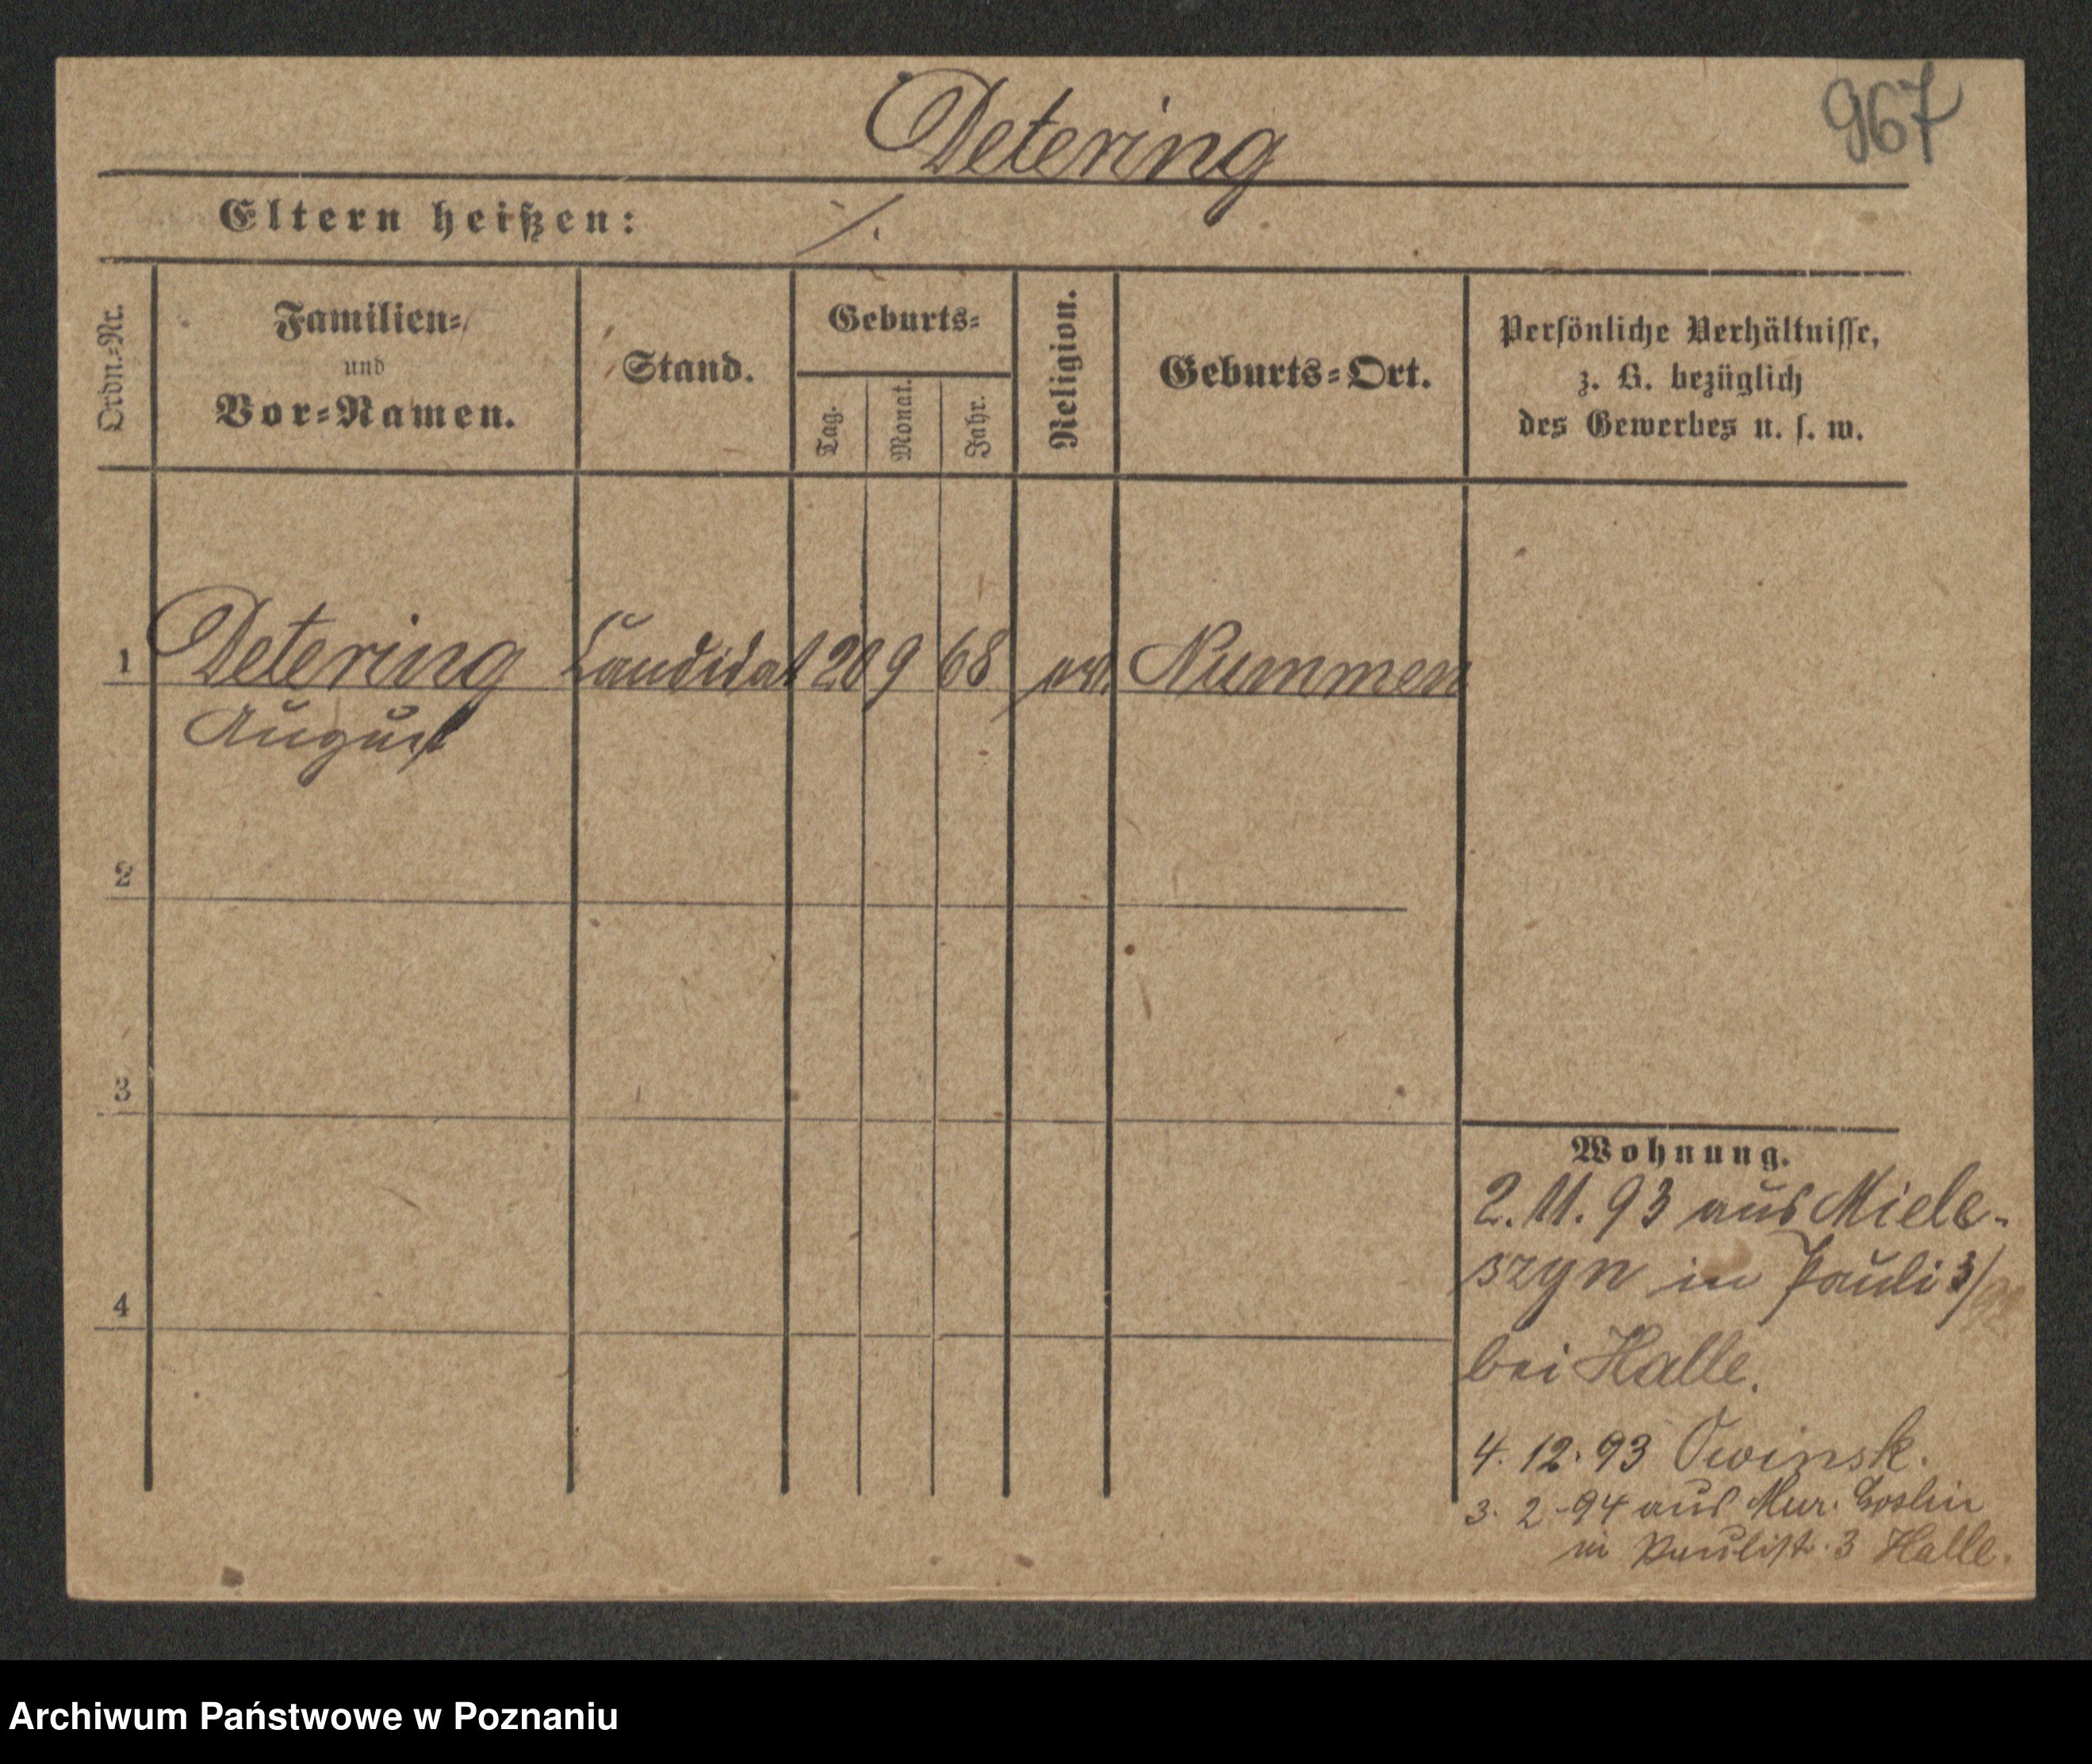 967
Detering
Eltern heißen: ⁒
Ordn.=Nr.
Familien=
und
Vor=Namen.
Stand.
Geburts=
Tag.
Monat.
Jahr.
Religion.
Geburts=Ort.
Persönliche Verhältnisse,
z. B. bezüglich
des Gewerbes u. s. w.
1 Detering Candidat 20 9 68 Nummen
August
2
3
4
Wohnung.
2. 11. 93 aus Miele-
szyn in Pauli 3/
bei Halle.
4. 12. 93 Owinsk.
3. 2. 94 aus Mur. Goslin
in Paulist. 3 Halle.
Archiwum Państwowe w Poznaniu